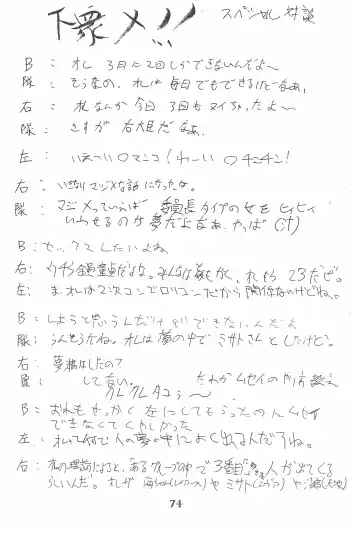 下衆メ!! スペシャル対談
B: オレ 3日に2回しかできないんだよ〜
隊: そうなの。オレは毎日でもできるけどなあ。
右: 私なんか今日3回もヌイちゃったよ〜
隊: さすが 右大臣だなあ。
左: いえ〜い〇マンコ! わーい〇チンチン!
右: いきなりマジメな話になったな。
隊: マジメっていえば 委員長タイプの女をヒィヒィ
いわせるのが夢だよなあ、やっぱ(汁)
B: セックスしたいよね
右: 全員童貞だよな。 オレも23だピ。
左: ま、オレは2次コンでロリコンだから関係ないけどね。
B: しようと思うんだけどできないんだよ
隊: うんそうだね。オレは夢の中でミサトさんとしたけど。
右: 夢精はしたの?
隊: して言い。 だれかムセイのやり方教え
クレクレタコラ〜
B: おれもせっかく左にしてもらったのにムセイ
できなくてくやしかった
左: オレって何で人の夢の中によく出るんだろね。
右: オレの理論によると、あるグループの中で「3番目」の人が出てくる
らしいんだ。
74